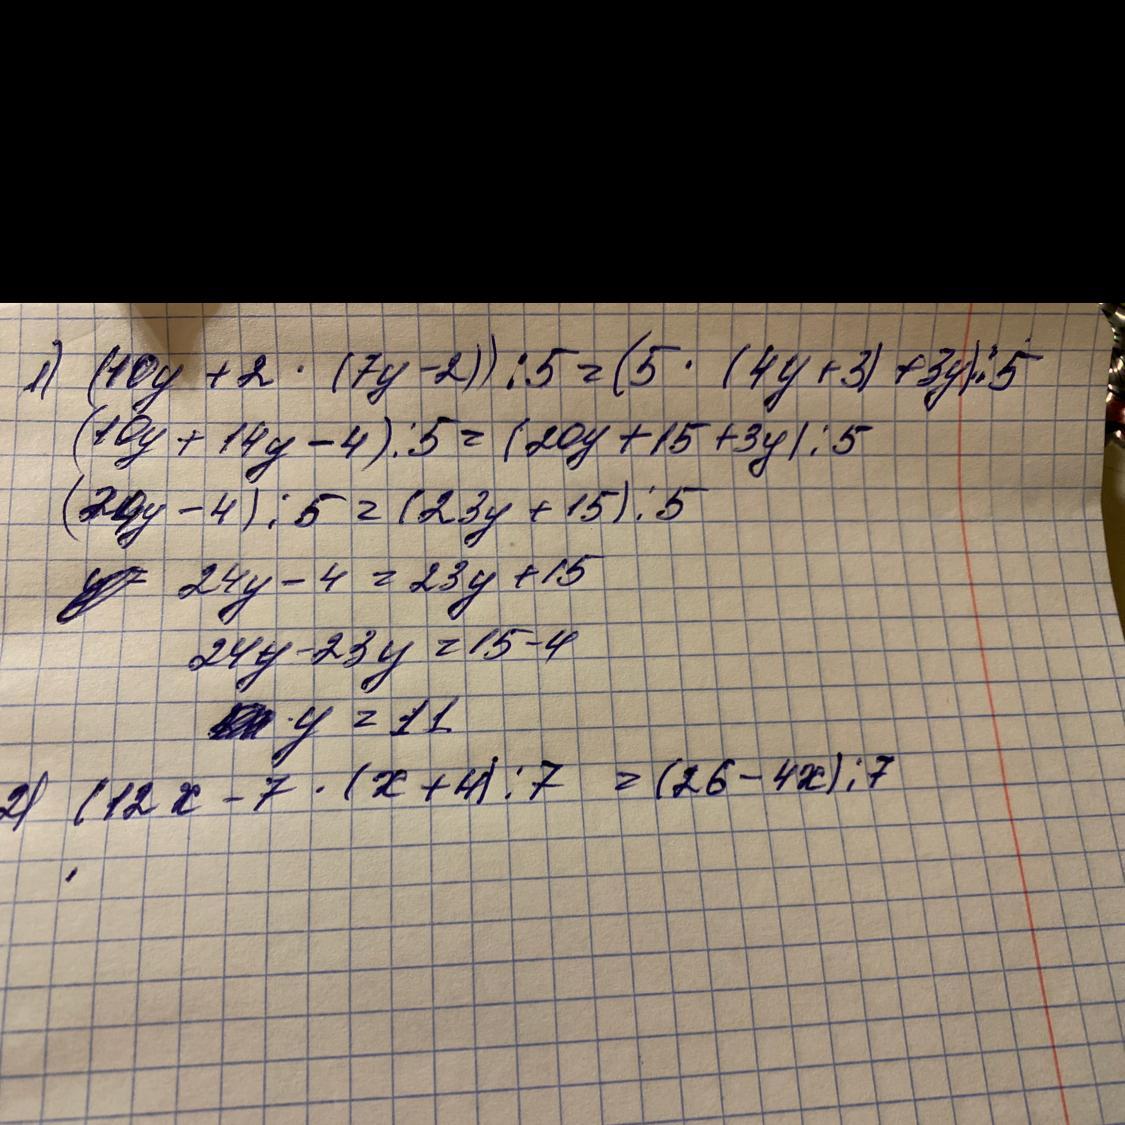 1) (10y + 2 · (7y - 2)) : 5 = (5 · (4y + 3) + 3y) : 5
(10y + 14y - 4) : 5 = (20y + 15 + 3y) : 5
(24y - 4) : 5 = (23y + 15) : 5
24y - 4 = 23y + 15
24y - 23y = 15 - 4
y = 11
2) (12x - 7 · (x + 4) : 7 = (26 - 4x) : 7